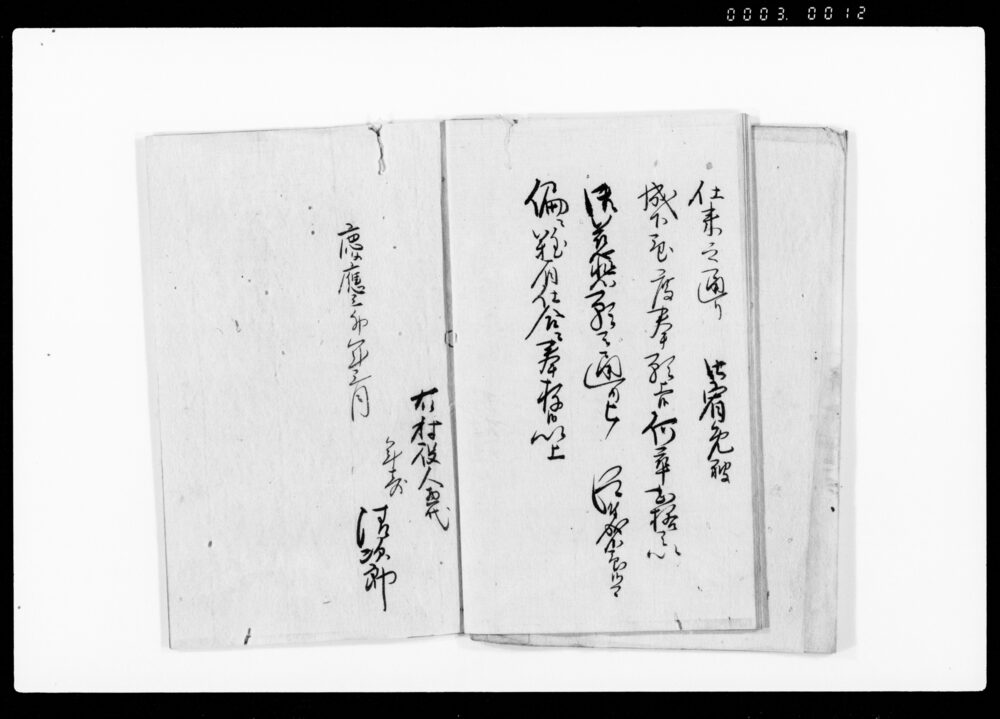 0003. 0012
仕来之通り 御宥免被
成下度奉願上候何卒出格之以
御慈悲願之通り 被成下候ハヽ
偏ニ難有仕合ニ奉存候以上
慶應三卯年三月
右村役人惣代
年寄
清次郎